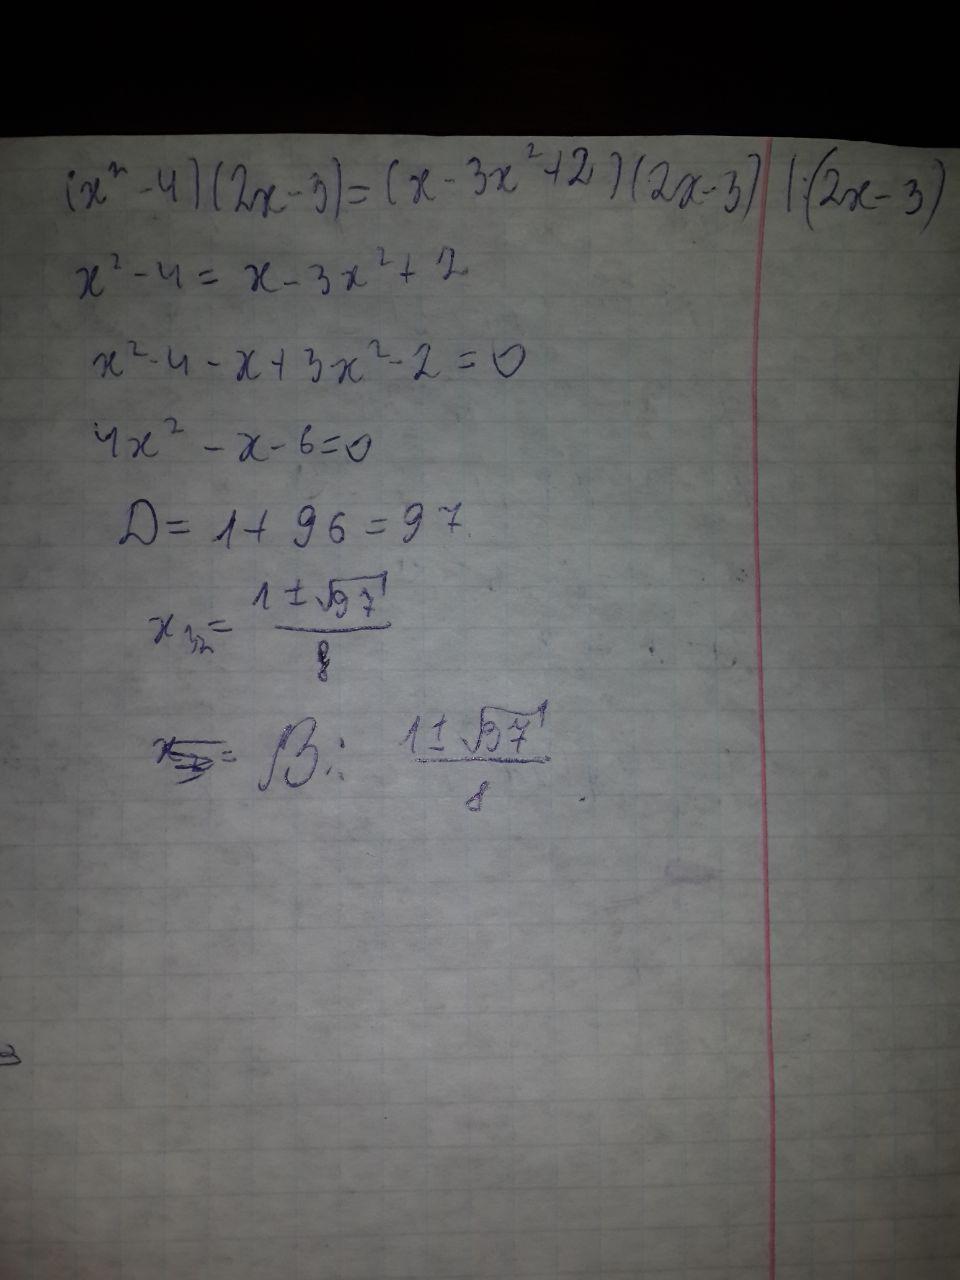 (x² - 4)(2x - 3) = (x - 3x² + 2)(2x - 3) | : (2x - 3)
x² - 4 = x - 3x² + 2
x² - 4 - x + 3x² - 2 = 0
4x² - x - 6 = 0
D = 1 + 96 = 97
x = (1 ± √97) / 8
В: (1 ± √97) / 8